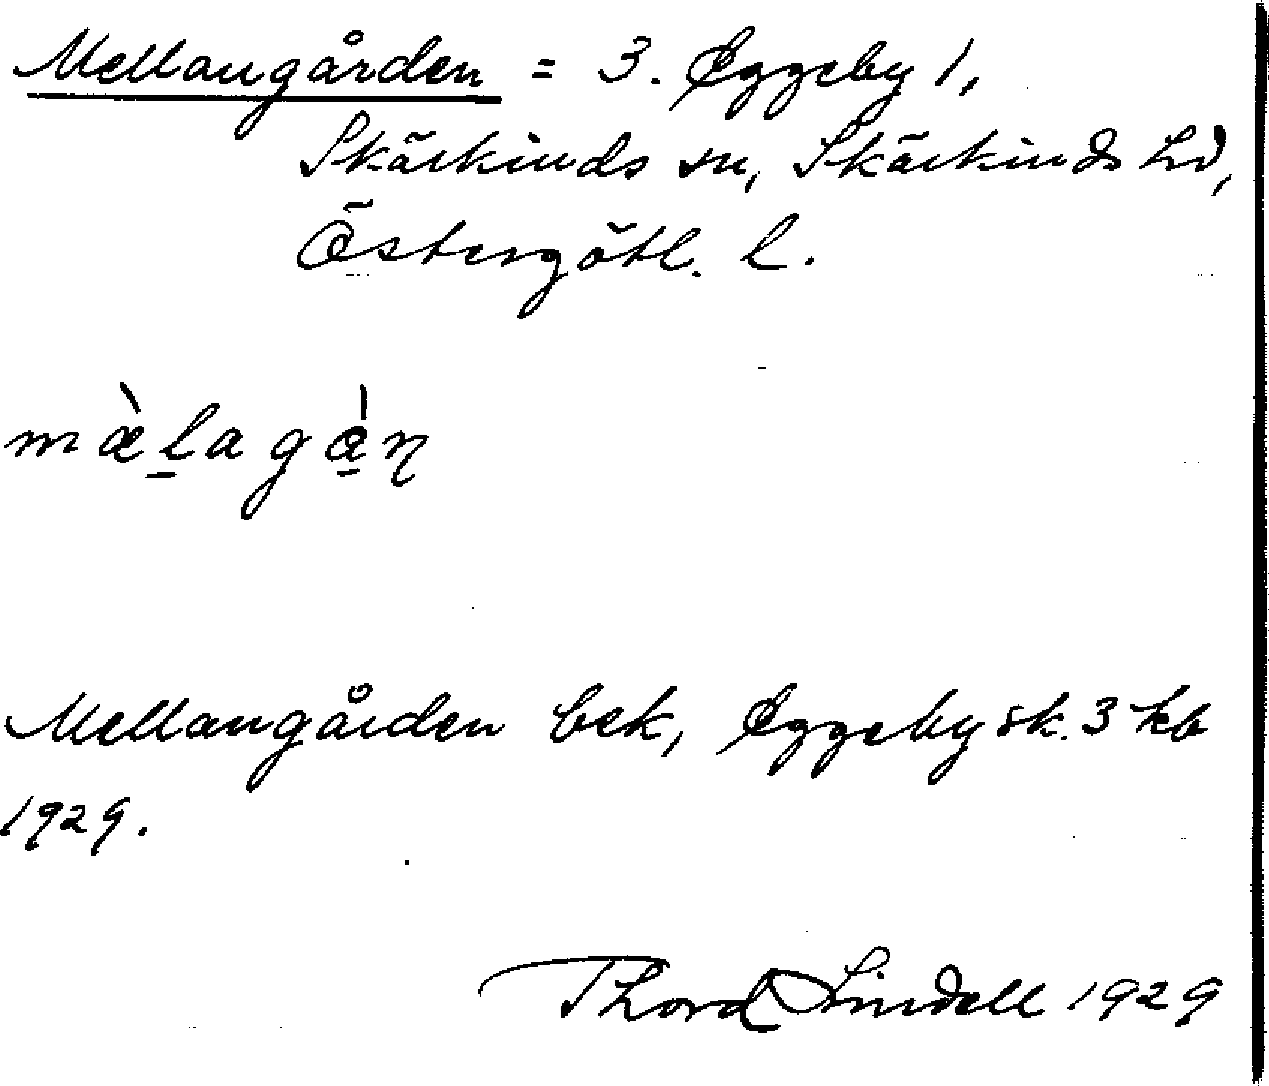 Mellangården = 3. Eggeby 1,
Skärkinds sn, Skärkinds hd,
Östergötl. l.
mæ̀l̠agạ̀ṇ
Mellangården bek, Eggeby sk. 3 kb
1929.
Thord Lindell 1929